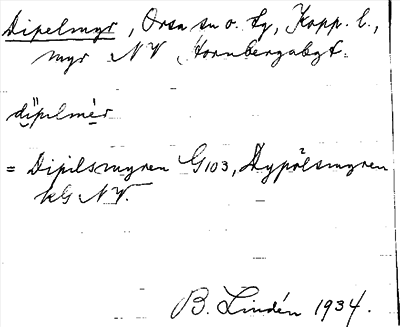 Dipelmyr, Orsa sn o. tg, Kopp. l.,
myr NV Hornbergabgt.
dìpilmèr
= Dipilsmyren G 103, Dypölsmyren
kG NV.
B. Lindén 1934.